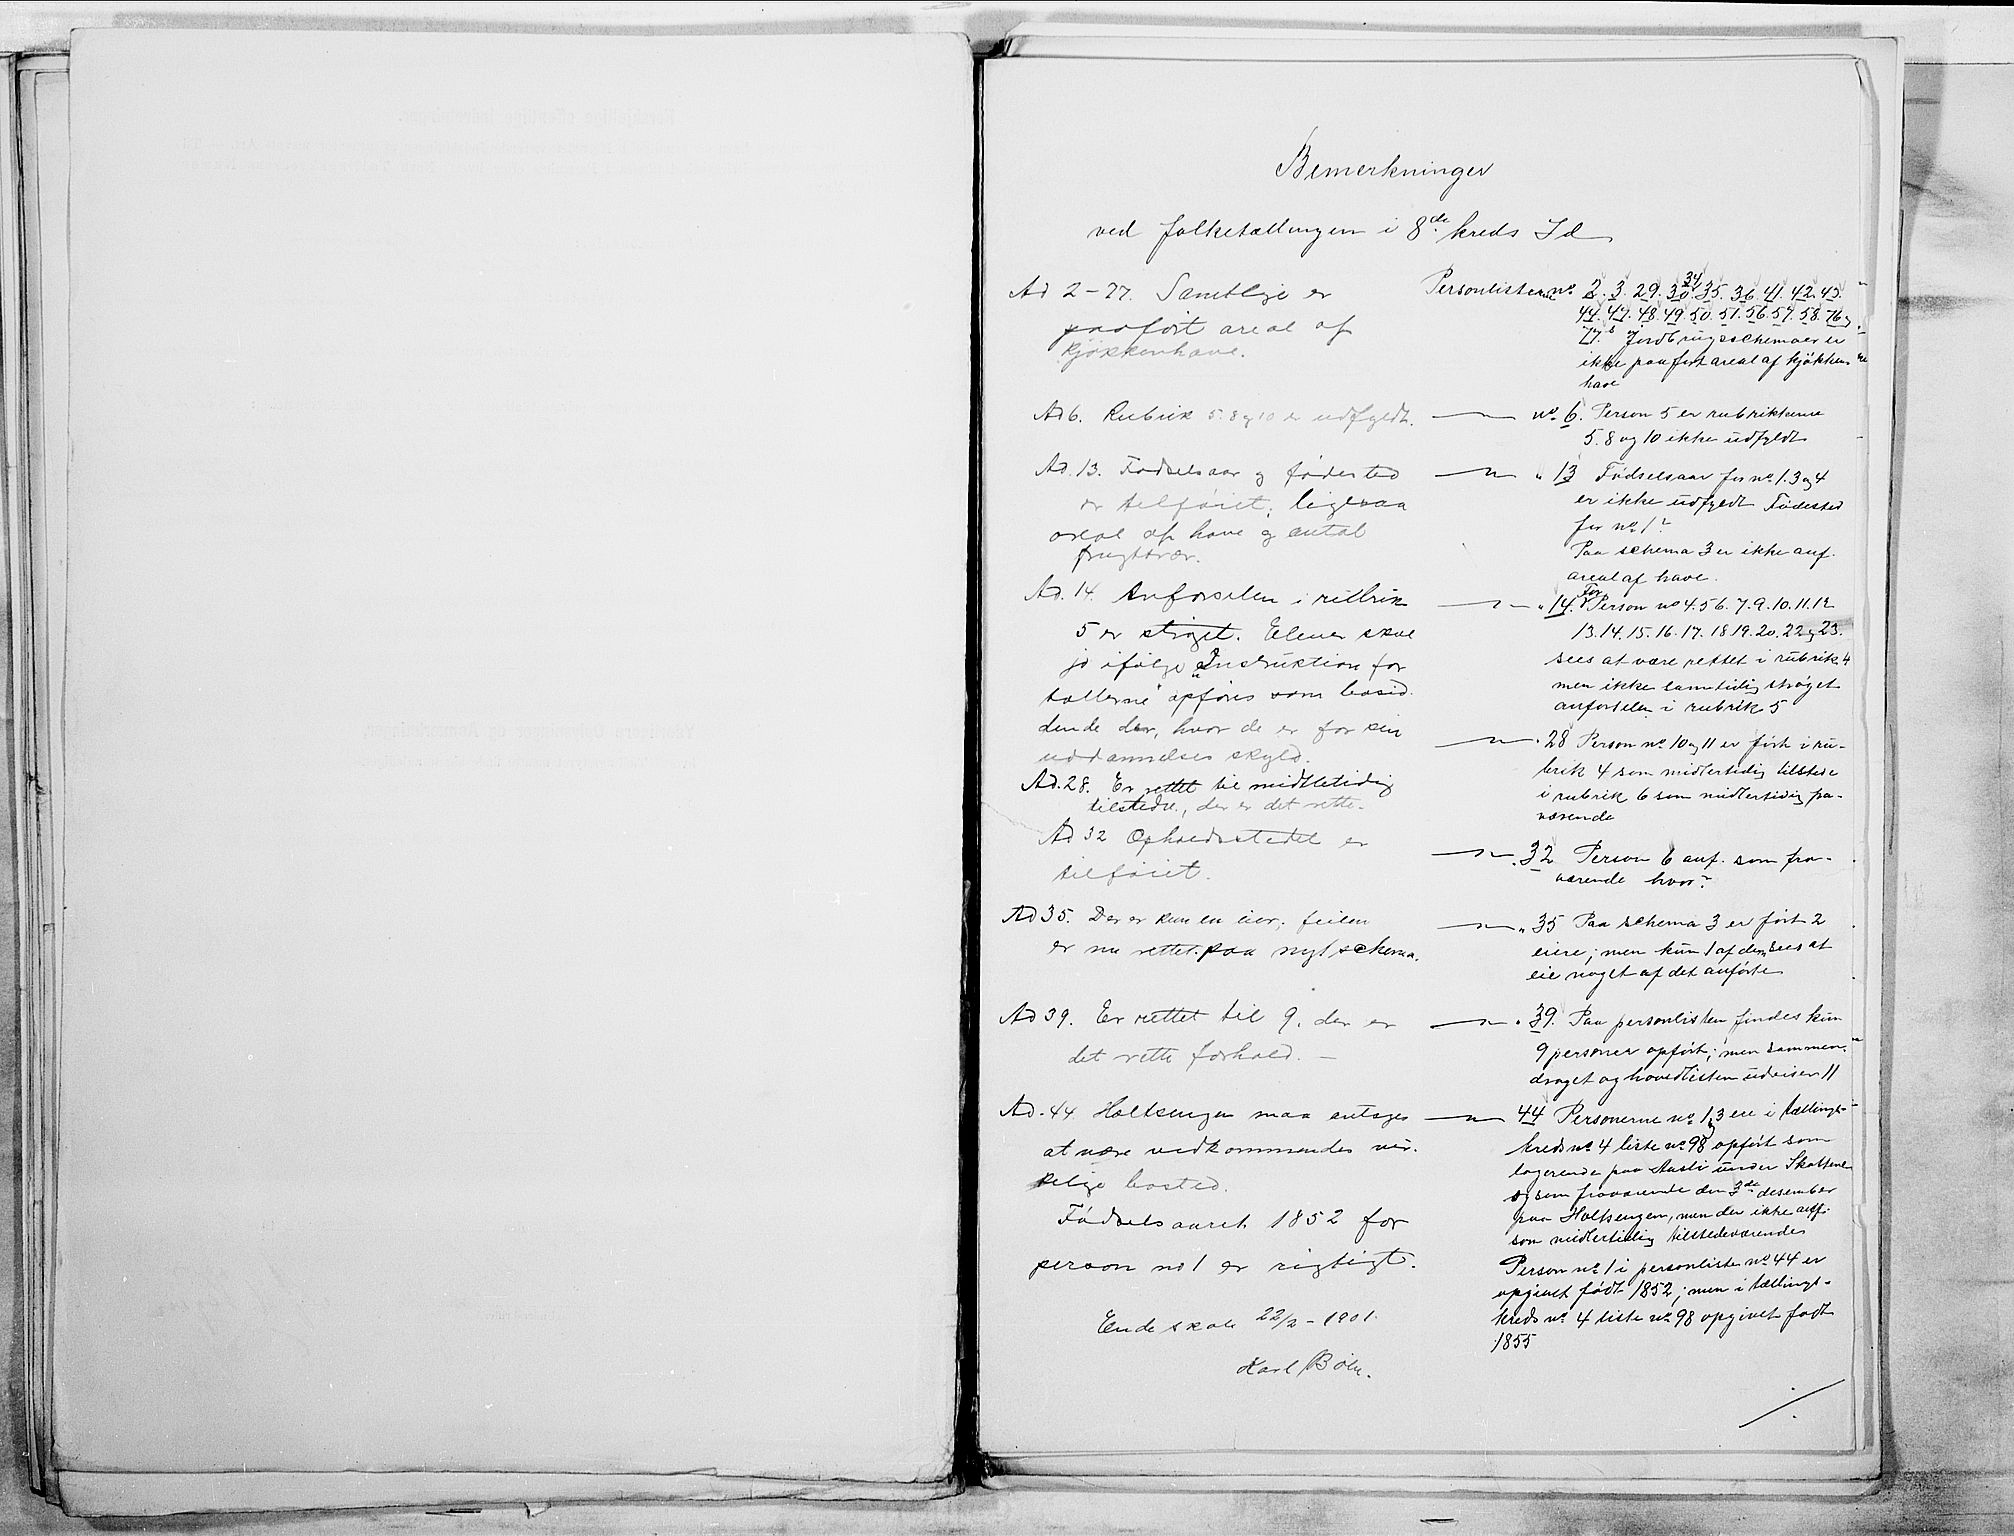 Bemerkninger
ved folketællingen i 8de kreds Id
Ad 2-77. Samtlige er
paaført areal af
kjøkkenhave.
Ad 6. Rubrik 5. 8 og 10 er udfyldt.
Ad. 13. Fødselsaar og fødested
er tilføiet; ligesaa
areal af have og antal
frugttrær.
Ad. 14. Anførselen i rubrik
5 er strøget. Elever skal
jo ifølge "Instruktion for
tællerne" opføres som bosid-
dende der, hvor de er for sin
uddannelses skyld.
Ad. 28. Er rettet til midlertidig
tilstede, der er det rette.
Ad 32 Opholdsstedet er
tilføiet.
Ad 35. Der er kun en eier; feilen
er nu rettet paa nyt schema.
Ad 39. Er rettet til 9, der er
det rette forhold. -
Ad. 44. Holtsengen maa antages
at være vedkommendes vir-
kelige bosted.
Fødselsaaret 1852 for
person no 1 er rigtigt.
Ende skole 22/2 - 1901.
Karl Bøhn.
Personlisterne no. 2. 3. 29. 30. 34 35. 36. 41. 42. 43.
44. 47. 48. 49. 50. 51. 56. 57. 58. 76 og
77.s Jordbrugsschemaer er
ikke paaført areal af kjøkken-
have
— no. 6. Person 5 er rubrikkerne
5. 8 og 10 ikke udfyldt
— " 13 Fødselsaar for no. 1. 3 og 4
er ikke udfyldt Fødested
for no. 1?
Paa schema 3 er ikke anf.
areal af have.
— " 14. For Person no 4. 5 6. 7. 9. 10. 11. 12
13. 14. 15. 16. 17. 18 19. 20. 22 og 23.
sees at være rettet i rubrik 4
men ikke samtidig strøget
anførselen i rubrik 5
— " 28 Person no. 10 og 11 er ført i ru-
brik 4 som midlertidig tilstede
i rubrik 6 som midlertidig fra-
værende
— " 32 Person 6 anf. som fra-
værende hvor?
— " 35 Paa schema 3 er ført 2
eiere; men kun 1 af dem sees at
eie noget af det anførte
— " 39. Paa personlisten findes kun
9 personer opført; men sammen-
draget og hovedlisten udviser 11
— 44 Personerne no. 1 og 3 ere i tællings-
kreds no. 4 liste no. 98 opført som
logerende paa Aasli under Skottene
og som fraværende den 3de desember
paa Holtsengen, men der ikke opf.
som midlertidig tilstedeværende
Person no. 1 i personliste no. 44 er
opgivet født 1852; men i tællings-
kreds no. 4 liste no. 98 opgivet født
1855